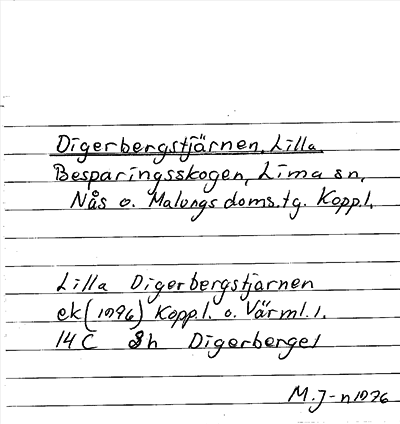 Digerbergstjärnen, Lilla
Besparingsskogen, Lima sn,
Nås o. Malungs doms.tg. Kopp.l.
Lilla Digerbergstjarnen
ek (1976) Kopp.l. o. Värml.l.
14 C 8h Digerberget
M.J-n 1976